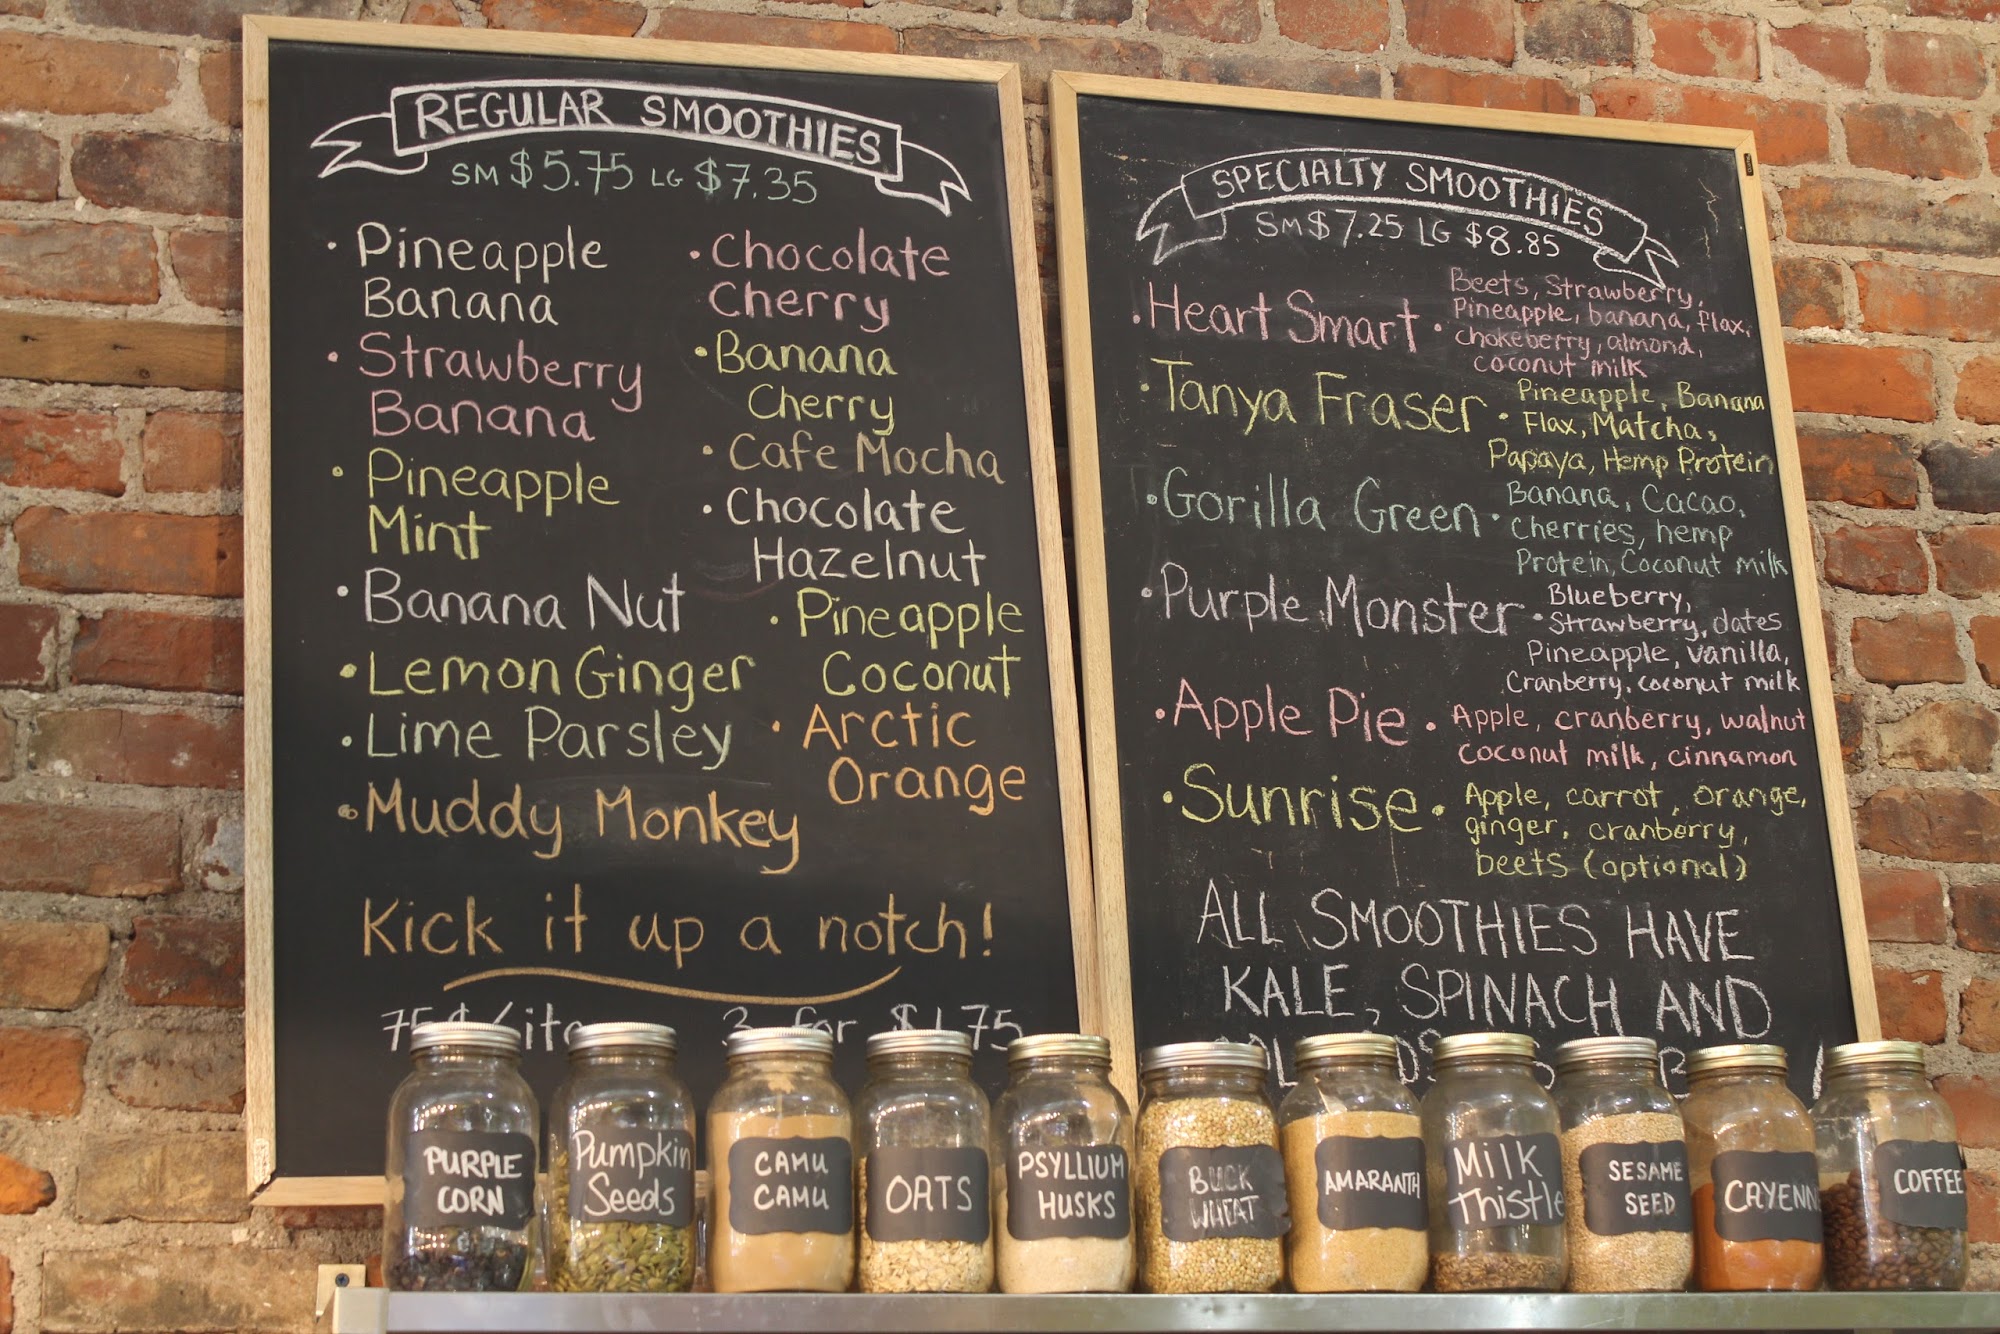 REGULAR SMOOTHIES
SM $5.75 LG $7.35
• Pineapple
Banana
• Strawberry
Banana
• Pineapple
Mint
• Banana Nut
• Lemon Ginger
• Lime Parsley
• Muddy Monkey
• Chocolate
Cherry
• Banana
Cherry
• Cafe Mocha
• Chocolate
Hazelnut
• Pineapple
Coconut
• Arctic
Orange
Kick it up a notch!
75¢/ite 3 for $1.75
SPECIALTY SMOOTHIES
SM $7.25 LG $8.85
• Heart Smart •
Beets, Strawberry,
Pineapple, banana, flax,
chokeberry, almond,
coconut milk
• Tanya Fraser •
Pineapple, Banana
Flax, Matcha,
Papaya, Hemp Protein
• Gorilla Green •
Banana, Cacao,
cherries, hemp
Protein, Coconut milk
• Purple Monster •
Blueberry,
Strawberry, dates
Pineapple, vanilla,
Cranberry, coconut milk
• Apple Pie •
Apple, cranberry, walnut
coconut milk, cinnamon
• Sunrise •
Apple, carrot, orange,
ginger, cranberry,
beets (optional)
ALL SMOOTHIES HAVE
KALE, SPINACH AND
PURPLE
CORN
Pumpkin
Seeds
CAMU
CAMU
OATS
PSYLLIUM
HUSKS
BUCK
WHEAT
AMARANTH
Milk
Thistle
SESAME
SEED
CAYENN
COFFEE